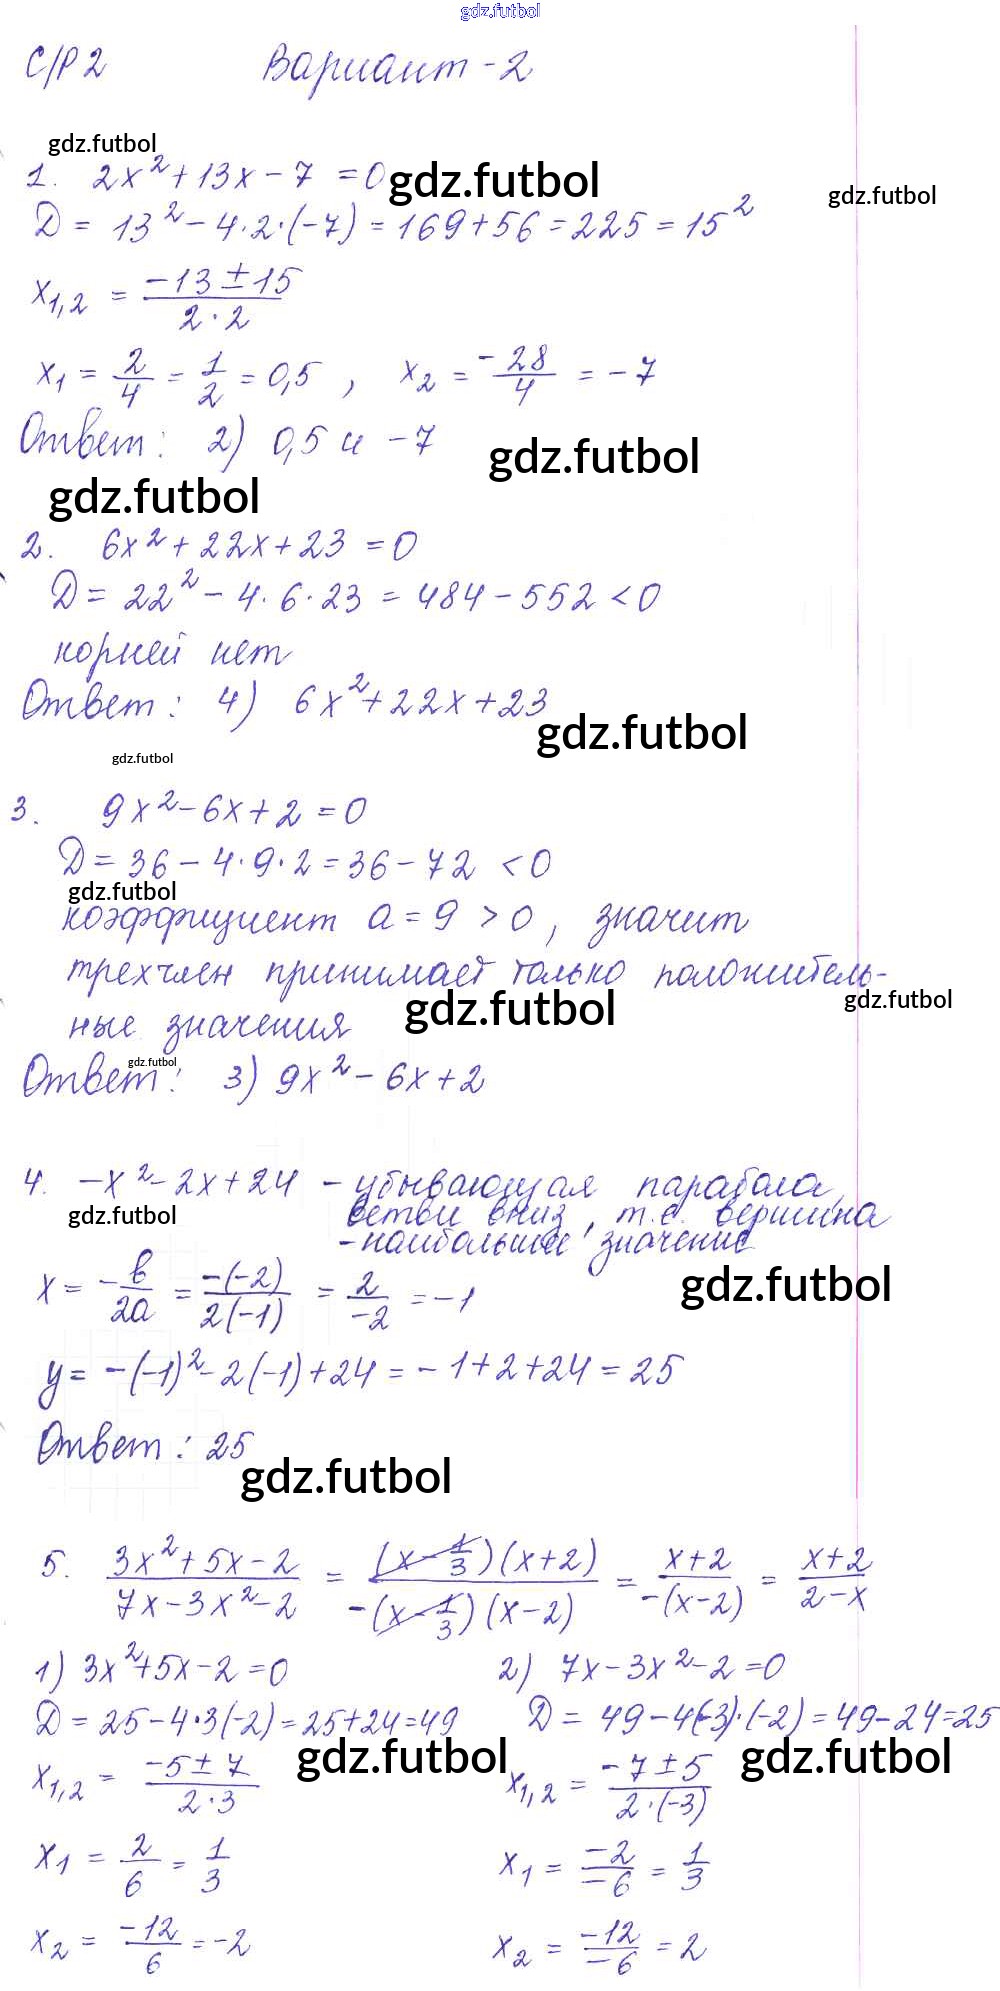 gdz.futbol
С/Р 2 Вариант - 2
gdz.futbol
1. 2x² + 13x - 7 = 0 gdz.futbol gdz.futbol
D = 13² - 4·2·(-7) = 169 + 56 = 225 = 15²
x₁,₂ = (-13 ± 15)/(2·2)
x₁ = 2/4 = 1/2 = 0,5 , x₂ = -28/4 = -7
Ответ: 2) 0,5 и -7 gdz.futbol
gdz.futbol
2. 6x² + 22x + 23 = 0
D = 22² - 4·6·23 = 484 - 552 < 0
корней нет
Ответ: 4) 6x² + 22x + 23
gdz.futbol
gdz.futbol
3. 9x² - 6x + 2 = 0
D = 36 - 4·9·2 = 36 - 72 < 0
gdz.futbol
коэффициент a = 9 > 0, значит
трехчлен принимает только положитель-
gdz.futbol gdz.futbol
ные значения
gdz.futbol
Ответ: 3) 9x² - 6x + 2
4. -x² - 2x + 24 - убывающая парабола,
gdz.futbol
ветви вниз, т.е. вершина
- наибольшее значение
gdz.futbol
x = -в/2a = -(-2)/2(-1) = 2/-2 = -1
y = -(-1)² - 2(-1) + 24 = -1 + 2 + 24 = 25
Ответ: 25
gdz.futbol
5. (3x² + 5x - 2)/(7x - 3x² - 2) = ((x - 1/3)(x + 2))/(-(x - 1/3)(x - 2)) = (x + 2)/(-(x - 2)) = (x + 2)/(2 - x)
1) 3x² + 5x - 2 = 0 2) 7x - 3x² - 2 = 0
D = 25 - 4·3(-2) = 25 + 24 = 49 D = 49 - 4(-3)·(-2) = 49 - 24 = 25
gdz.futbol gdz.futbol
x₁,₂ = (-5 ± 7)/(2·3) x₁,₂ = (-7 ± 5)/(2·(-3))
x₁ = 2/6 = 1/3 x₁ = -2/-6 = 1/3
x₂ = -12/6 = -2 x₂ = -12/-6 = 2